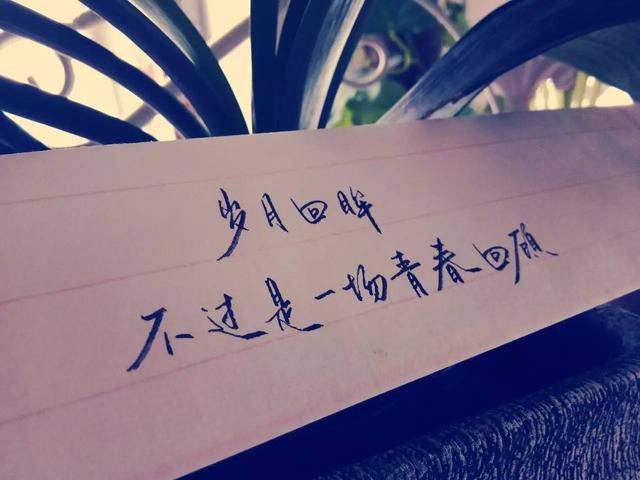 岁月回眸
不过是一场青春回顾